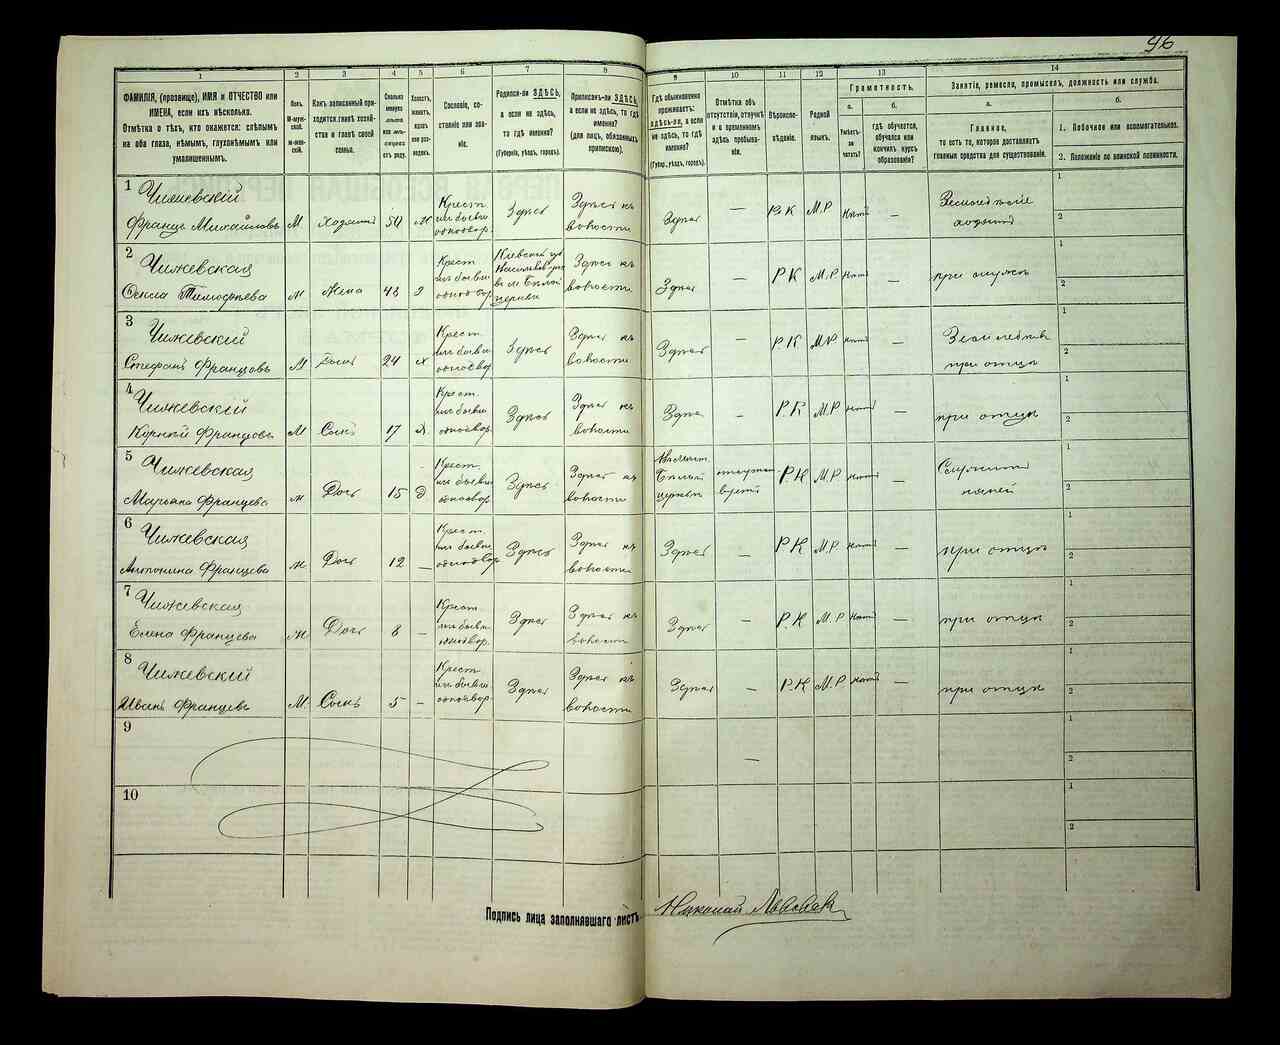 96
1
2
3
4
5
6
7
8
9
10
11
12
13
14
ФАМИЛІЯ, (прозвище), ИМЯ и ОТЧЕСТВО или
ИМЕНА, если ихъ нѣсколько.
Отмѣтка о тѣхъ, кто окажется: слѣпымъ
на оба глаза, нѣмымъ, глухонѣмымъ или
умалишеннымъ.
Полъ.
М-муж-
ской.
Ж-жен-
скій.
Какъ записанный при-
ходится главѣ хозяй-
ства и главѣ своей
семьи.
Сколько
минуло
лѣтъ
или мѣ-
сяцевъ
отъ роду.
Холостъ,
женатъ,
вдовъ
или раз-
веденъ.
Сословіе, со-
стояніе или зва-
ніе.
Родился-ли ЗДѢСЬ,
а если не здѣсь,
то гдѣ именно?
(Губернія, уѣздъ, городъ).
Приписанъ-ли ЗДѢСЬ,
а если не здѣсь, то гдѣ
именно?
(для лицъ, обязанныхъ
припискою).
Гдѣ обыкновенно
проживаетъ:
здѣсь-ли, а если
не здѣсь, то гдѣ
именно?
(Губер., уѣздъ, городъ).
Отмѣтка объ
отсутствіи, отлучкѣ
и о временномъ
здѣсь пребыва-
ніи.
Вѣроиспо-
вѣданіе.
Родной
языкъ.
Грамотность.
а.
б.
Умѣетъ-
ли
читать?
гдѣ обучается,
обучался или
кончилъ курсъ
образованія?
Занятіе, ремесло, промыселъ, должность или служба.
а.
б.
Главное,
то есть то, которое доставляетъ
главныя средства для существованія.
1. Побочное или вспомогательное.
2. Положеніе по воинской повинности.
1
Чижевскій
Францъ Михайловъ
М
Хозяинъ
50
Ж
Крест.
изъ бывш.
однодвор.
Здѣсь
Здѣсь къ
волости
Здѣсь
—
Р.К
М.Р
нѣтъ
—
хозяинъ
1
2
2
Чижевская
Тимофѣева
Ж
Жена
Крест
изъ бывш
однодвор
Здѣсь къ
волости
Здѣсь
—
Р К
М.Р
нѣтъ
—
при мужѣ
1
2
3
Чижевскій
Стефанъ Францовъ
М
Сынъ
24
Х
Крест.
изъ бывш
однодвор
Здѣсь
Здѣсь къ
волости
Здѣсь
—
Р.К
М.Р
нѣтъ
—
при отцѣ
1
2
4
Чижевскій
Францовъ
М
Сынъ
17
Х
Крест.
изъ бывш
однодвор
Здѣсь
Здѣсь къ
волости
Здѣсь
—
Р.К
М.Р
нѣтъ
—
при отцѣ
1
2
5
Чижевская
Марьяна Францева
ж
Дочь
15
Д
Крест.
изъ бывш
однодвор
Здѣсь
Здѣсь къ
волости
церковь
Р.К
М.Р
нѣтъ
—
Служитъ
няней
1
2
6
Чижевская
Антонина Францева
ж
Дочь
12
—
Крест
изъ бывш
однодвор
Здѣсь
Здѣсь къ
волости
Здѣсь
—
Р.К
М.Р.
нѣтъ
—
при отцѣ
1
2
7
Чижевская
Елена Францева
Ж
Дочь
8
—
Крест
изъ бывш
однодвор.
Здѣсь
Здѣсь къ
волости
Здѣсь
—
Р.К
М.Р
нѣтъ
—
при отцѣ
1
2
8
Чижевскій
Иванъ Францевъ
М
Сынъ
5
—
Крест
изъ бывш
однодвор.
Здѣсь
Здѣсь къ
волости
Здѣсь
—
Р.К
М.Р
нѣтъ
—
при отцѣ
1
2
9
—
1
2
10
1
2
Подпись лица заполнявшаго листъ
Николай